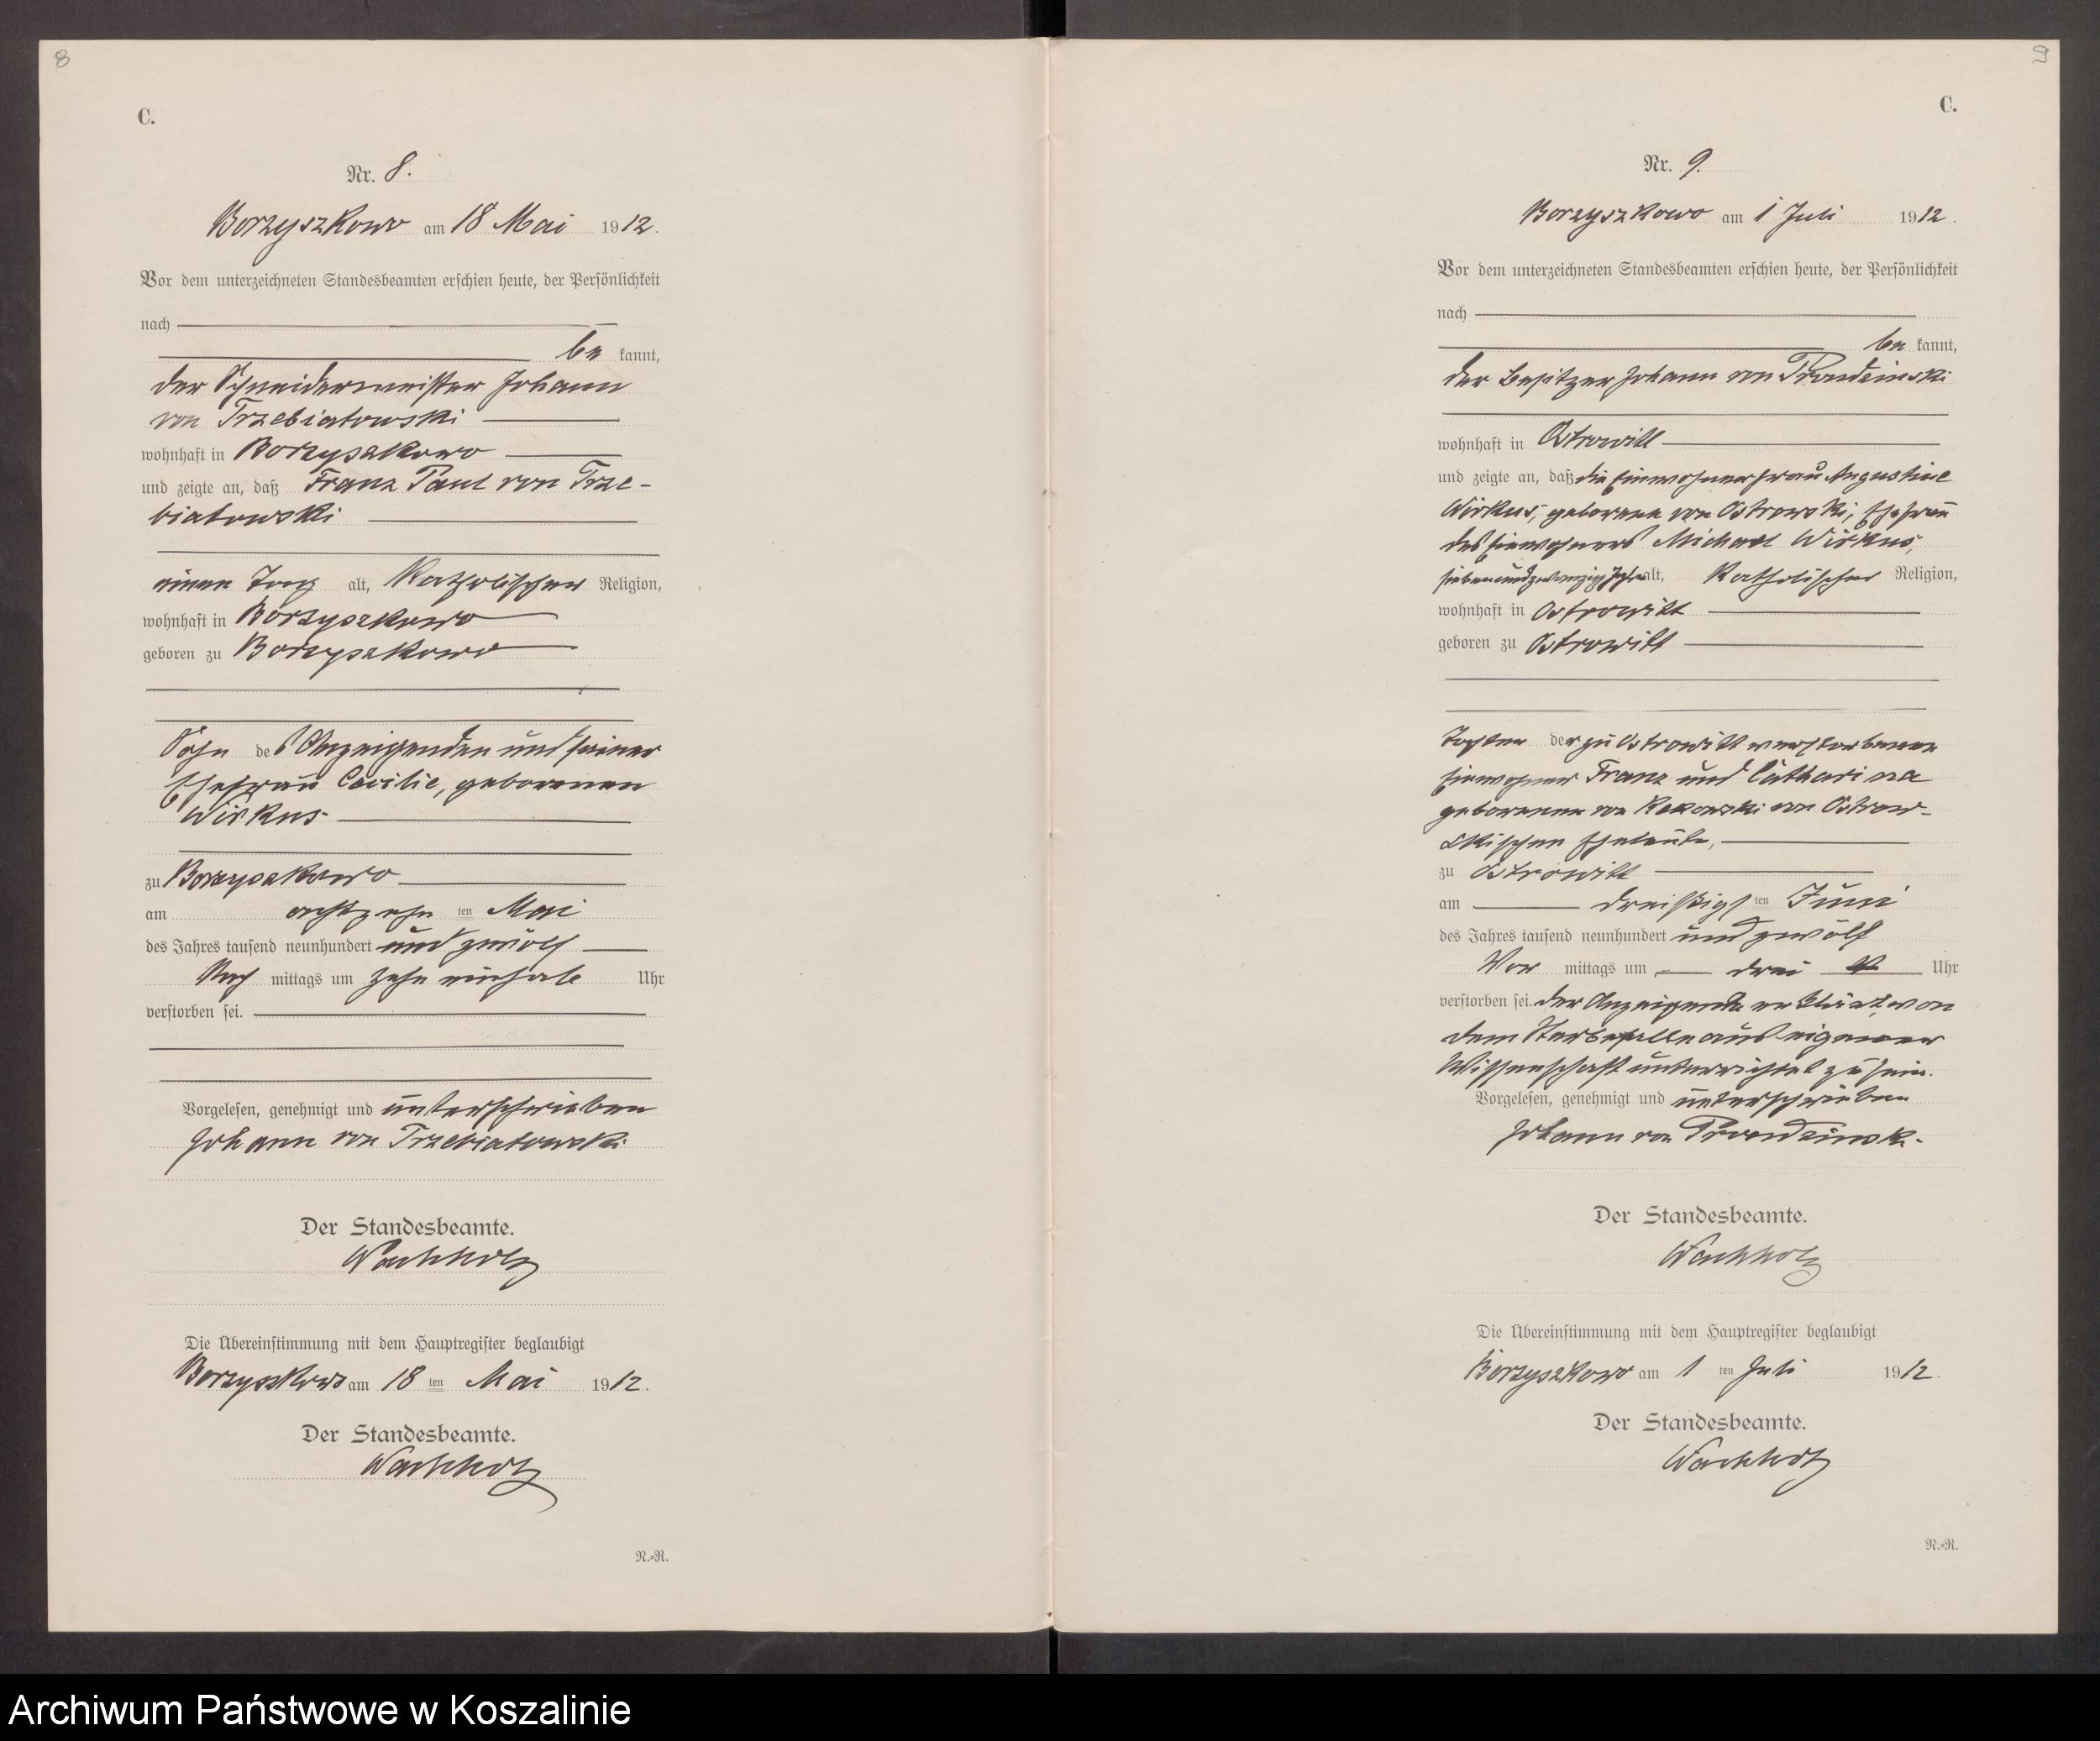 8
C.
Nr. 8.
Borzyszkowo am 18 Mai 1912.
Vor dem unterzeichneten Standesbeamten erschien heute, der Persönlichkeit
nach
be kannt,
der Schneidermeister Johann
von Trzebiatowski
wohnhaft in Borzyszkowo
und zeigte an, daß Franz Paul von Trze-
biatowski
einen Tag alt, katholischer Religion,
wohnhaft in Borzyszkowo
geboren zu Borzyszkowo
Sohn des Anzeigenden und seiner
Ehefrau Cecilie, geborenen
Wirkus
zu Borzyszkowo
am achtzehn ten Mai
des Jahres tausend neunhundert und zwölf
Nach mittags um zehn einhalb Uhr
verstorben sei.
Vorgelesen, genehmigt und unterschrieben
Johann von Trzebiatowski
Der Standesbeamte.
Wachholz
Die Übereinstimmung mit dem Hauptregister beglaubigt
Borzyszkowo am 18 ten Mai 1912.
Der Standesbeamte.
Wachholz
N.=R.
9
C.
Nr. 9.
Borzyszkowo am 1 Juli 1912.
Vor dem unterzeichneten Standesbeamten erschien heute, der Persönlichkeit
nach
be kannt,
der Besitzer Johann von Prondzinski
wohnhaft in Ostrowitt
und zeigte an, daß die Einwohnerfrau Augustine
Wirkus, geborene von Ostrowski, Ehefrau
des Einwohners Michael Wirkus,
siebenundzwanzig Jahre alt, katholischer Religion,
wohnhaft in Ostrowitt
geboren zu Ostrowitt
Tochter der zu Ostrowitt verstorbenen
Einwohner Franz und Catharina
geborenen von Kekowski von Ostrow-
skischen Eheleute,
zu Ostrowitt
am dreißigs ten Juni
des Jahres tausend neunhundert und zwölf
Vor mittags um drei Uhr
verstorben sei. Der Anzeigende erklärt, von
dem Sterbefalle aus eigener
Wissenschaft unterrichtet zu sein.
Vorgelesen, genehmigt und unterschrieben
Johann von Prondzinski
Der Standesbeamte.
Wachholz
Die Übereinstimmung mit dem Hauptregister beglaubigt
Borzyszkowo am 1 ten Juli 1912.
Der Standesbeamte.
Wachholz
N.=R.
Archiwum Państwowe w Koszalinie